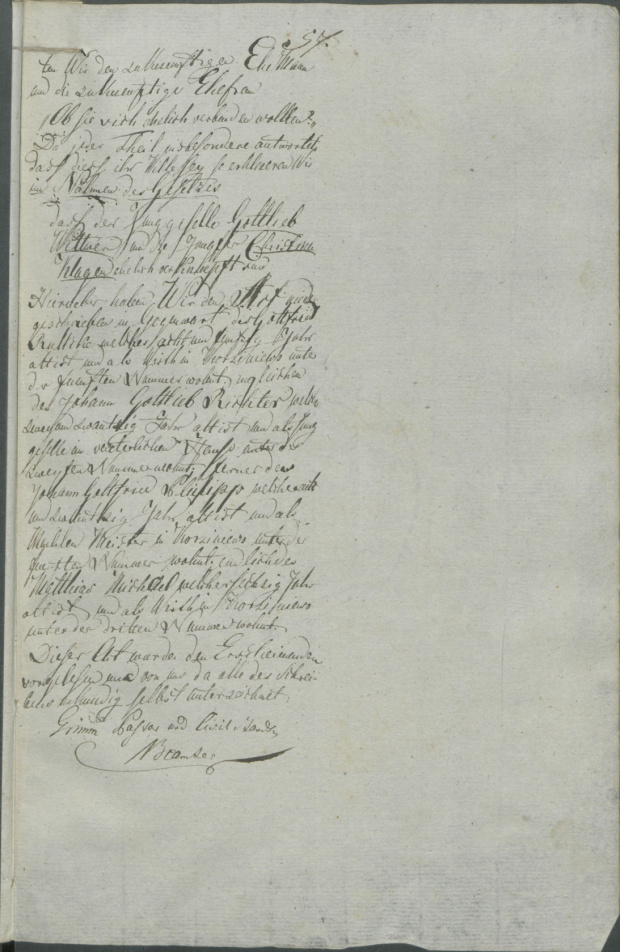 57.
ten Wir den zukuenftigen Ehe Mann
und die zukuenftige Ehefrau
Ob sie sich ehelich verbinden wollten?
Da jeder Theil insbesondere antwortete
dass dies ihr Wille sey so erklaeren Wir
im Nahmen des Gesetzes
dass der Junggeselle Gottlieb
und die Jungfer Christina
ehelich verknuepft sind
Hierueber haben Wir den Act
geschrieben in Gegenwart des Gottfried
welcher acht und Jahr
alt ist und als Wirth in unter
der fuenften Nummer wohnt, ingleichen
des Johann Gottlieb Richter welcher
zwey und zwantzig Jahr alt ist und als Jung
geselle im vaeterlichen Hause unter der
zweyten Nummer wohnt, ferner des
Johann Gottfried welcher acht
und zwantzig Jahr alt ist und als
Muehlen Meister in unter der
Nummer wohnt, endlich des
Matthias Michael welcher sechzig Jahr
alt ist und als Wirth in
unter der dritten Nummer wohnt.
Dieser Act wurde den Erscheinenden
vorgelesen und von uns da alle des Schrei-
bens unkundig selbst unterzeichnet
Grimm Pastor und Civil Stands
Beamter